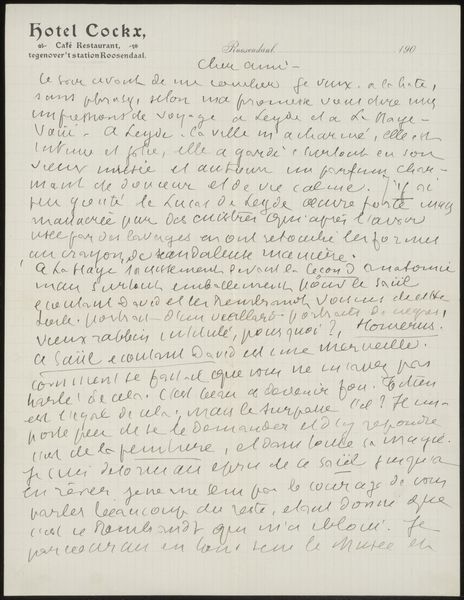 Hotel Cockx,
Café Restaurant,
tegenover't station Roosendaal.
Roosendaal, 190
Cher ami -
Ce soir avant de me coucher je veux, à la hâte,
sans phrases, selon ma promesse vous dire mes
impressions de voyage à Leyde et à La Haye -
Voici - A Leyde. La ville m'a charmé, elle est
intime et jolie, elle a gardé surtout en son
vieux musée et autour un parfum char-
mant de douceur et de vie calme. J'y ai
peu goûté le Lucas de Leyde œuvre forte mais
massacrée par des cuistres qui après l'avoir
usée par des lavages en ont retouché les formes
au crayon, de scandaleuse manière.
A La Haye devant la leçon d'anatomie
mais surtout emballement pour le Saül
écoutant David et les Rembrandt voisins de cette
portrait d'un vieillard - portraits de nègres,
vieux rabbin intitulé, pourquoi?, Homérus.
Ce Saül écoutant David est une merveille.
Comment se fait-il que vous ne m'ayez pas
parlé de cela. C'est beau à devenir fou. Titien
est l'égal de cela, mais le surpasse-t-il? Peu im-
porte peu de se le demander et d'y répondre
c'est de la peinture, et dans toute sa magie.
Je suis désormais épris de ce Saül jusqu'à
en rêver. Je ne me sens pas le courage de vous
parler beaucoup du reste, étant donné que
c'est ce Rembrandt qui m'a ébloui. Je
parcourais en tous sens le Musée en